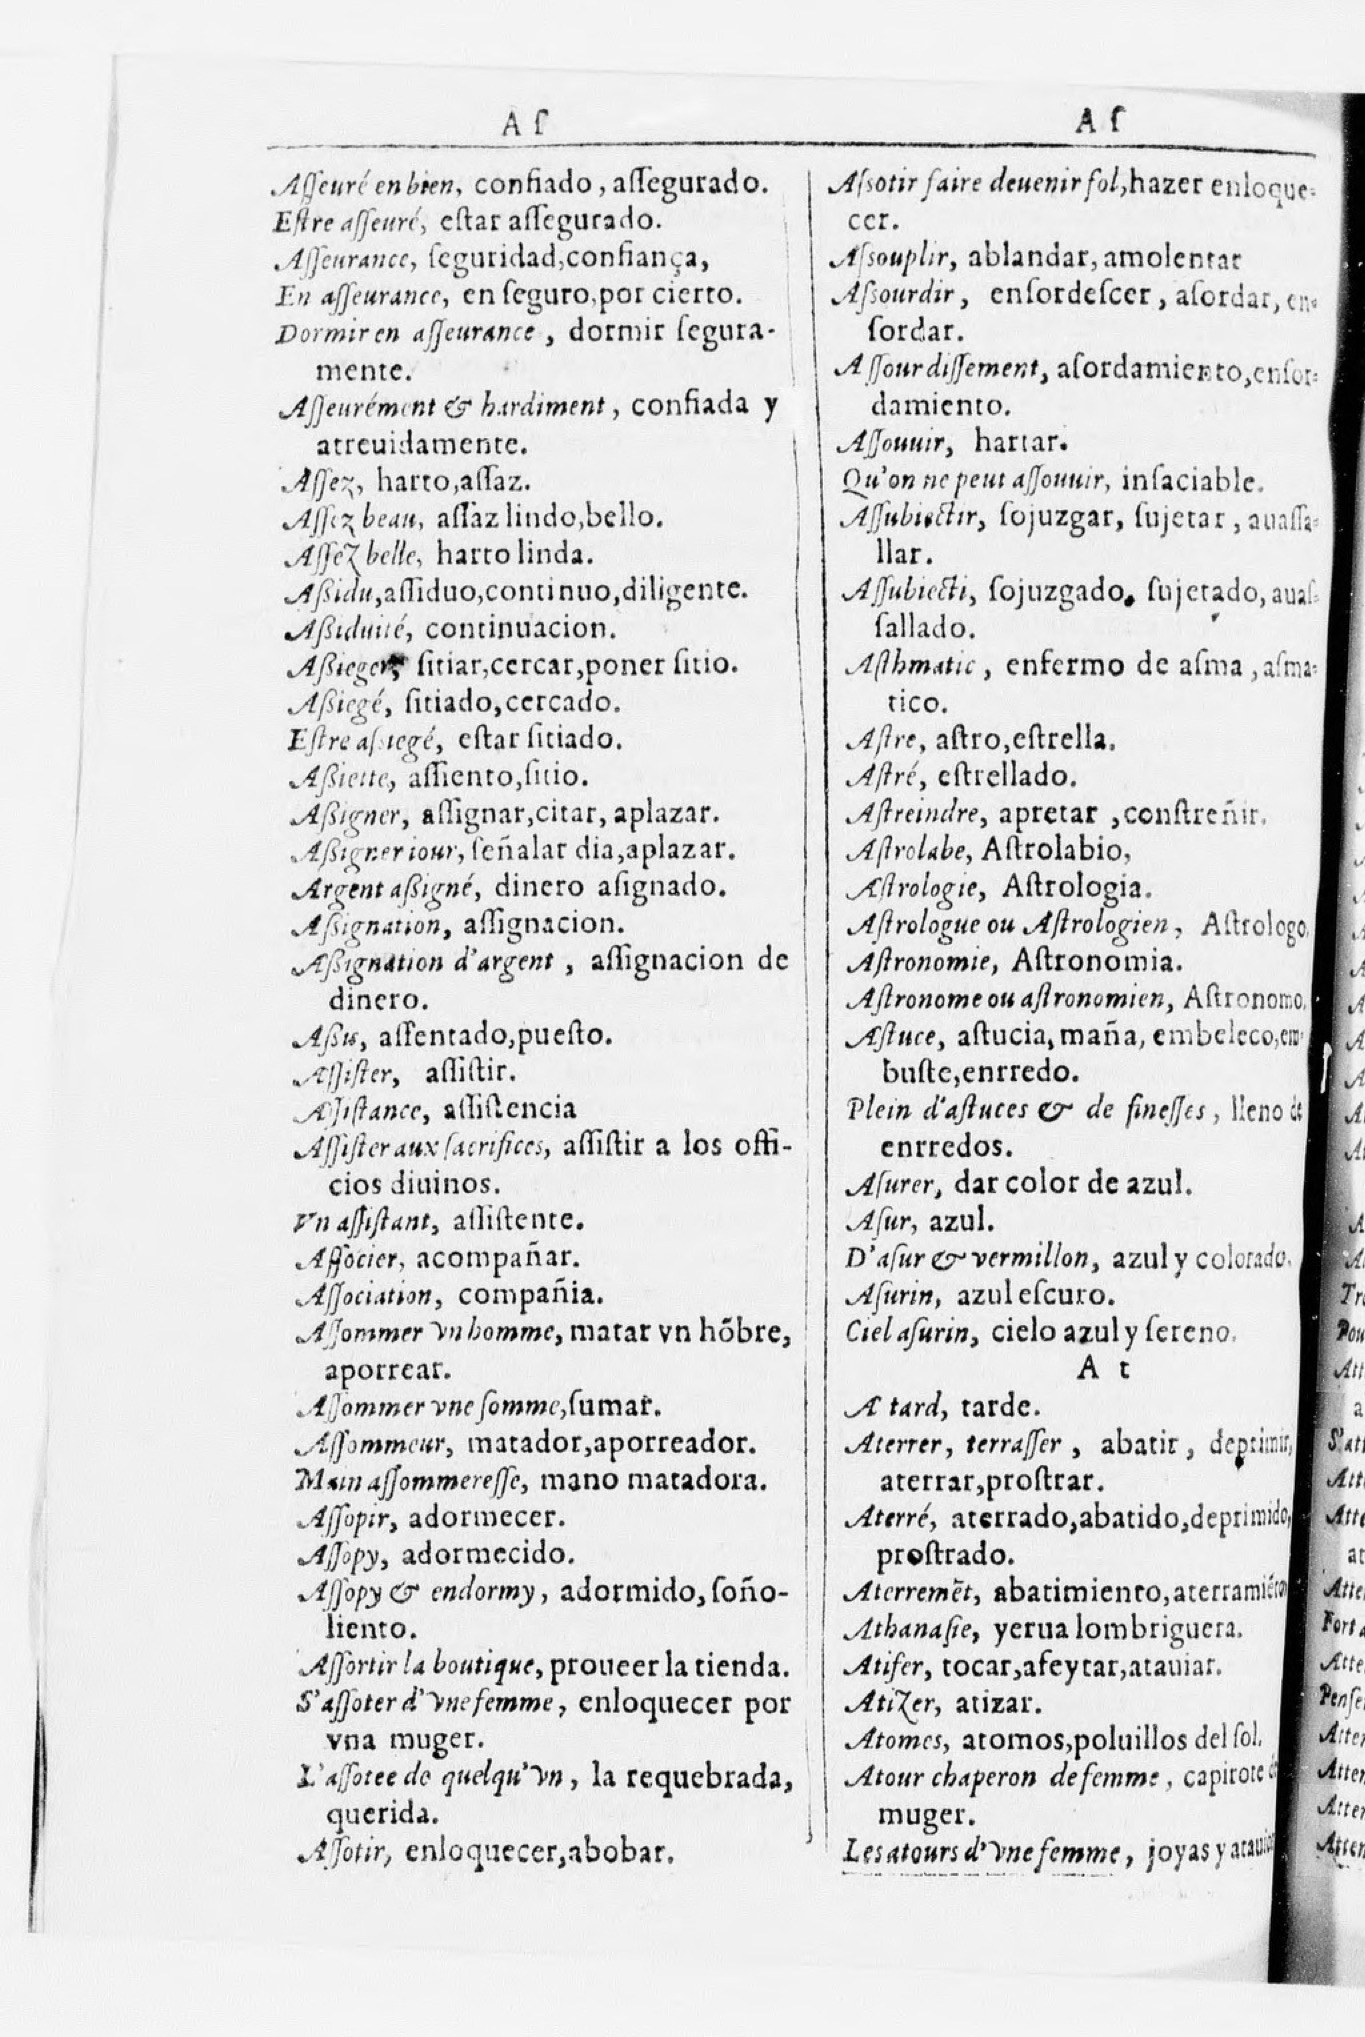 A ſ
Aſſeuré en bien, confiado, aſſegurado.
Eſtre aſſeuré, eſtar aſſegurado.
Aſſeurance, ſeguridad,confiança,
En aſſeurance, en ſeguro,por cierto.
Dormir en aſſeurance, dormir ſegura-
mente.
Aſſeurément & hardiment, confiada y
atreuidamente.
Aſſez, harto,aſſaz.
Aſſez beau, aſſaz lindo,bello.
Aſſez belle, harto linda.
Aßidu,aſſiduo,continuo,diligente.
Aßiduité, continuacion.
Aßieger, ſitiar,cercar,poner ſitio.
Aßiegé, ſitiado,cercado.
Eſtre aſsiegé, eſtar ſitiado.
Aßiette, aſſiento,ſitio.
Aßigner, aſſignar,citar, aplazar.
Aßigner iour, ſeñalar dia,aplazar.
Argent aßigné, dinero aſignado.
Aßignation, aſſignacion.
Aßignation d'argent, aſſignacion de
dinero.
Aßis, aſſentado,pueſto.
Aſſiſter, aſſiſtir.
Aſſiſtance, aſſiſtencia
Aſſiſter aux ſacrifices, aſſiſtir a los offi-
cios diuinos.
Vn aſſiſtant, aſſiſtente.
Aſſocier, acompañar.
Aſſociation, compañia.
Aſſommer vn homme, matar vn hõbre,
aporrear.
Aſſommer vne ſomme,ſumar.
Aſſommeur, matador,aporreador.
Main aſſommereſſe, mano matadora.
Aſſopir, adormecer.
Aſſopy, adormecido.
Aſſopy & endormy, adormido, ſoño-
liento.
Aſſortir la boutique, proueer la tienda.
S'aſſoter d'vne femme, enloquecer por
vna muger.
L'aſſotee de quelqu'vn, la requebrada,
querida.
Aſſotir, enloquecer,abobar.
A ſ
Aſsotir faire deuenir fol,hazer enloque-
cer.
Aſsouplir, ablandar, amolentar
Aſsourdir, enſordeſcer, aſordar, en-
ſordar.
Aſſourdiſſement, aſordamiento,enſor-
damiento.
Aſſouuir, hartar.
Qu'on ne peut aſſouuir, inſaciable.
Aſſubiectir, ſojuzgar, ſujetar, auaſſa-
llar.
Aſſubiecti, ſojuzgado, ſujetado, auaſ-
ſallado.
Aſthmatic, enfermo de aſma, aſma-
tico.
Aſtre, aſtro,eſtrella.
Aſtré, eſtrellado.
Aſtreindre, apretar ,conſtreñir.
Aſtrolabe, Aſtrolabio,
Aſtrologie, Aſtrologia.
Aſtrologue ou Aſtrologien, Aſtrologo.
Aſtronomie, Aſtronomia.
Aſtronome ou aſtronomien, Aſtronomo.
Aſtuce, aſtucia, maña, embeleco,em-
buſte,enrredo.
Plein d'aſtuces & de fineſſes, lleno de
enrredos.
Aſurer, dar color de azul.
Aſur, azul.
D'aſur & vermillon, azul y colorado.
Aſurin, azul eſcuro.
Ciel aſurin, cielo azul y ſereno.
A t
A tard, tarde.
Aterrer, terraſſer, abatir, deprimir,
aterrar,proſtrar.
Aterré, aterrado,abatido,deprimido,
proſtrado.
Aterremẽt, abatimiento,aterramiẽto
Athanaſie, yerua lombriguera.
Atifer, tocar,afeytar,atauiar.
Atizer, atizar.
Atomes, atomos,poluillos del ſol.
Atour chaperon de femme, capirote de
muger.
Les atours d'vne femme, joyas y